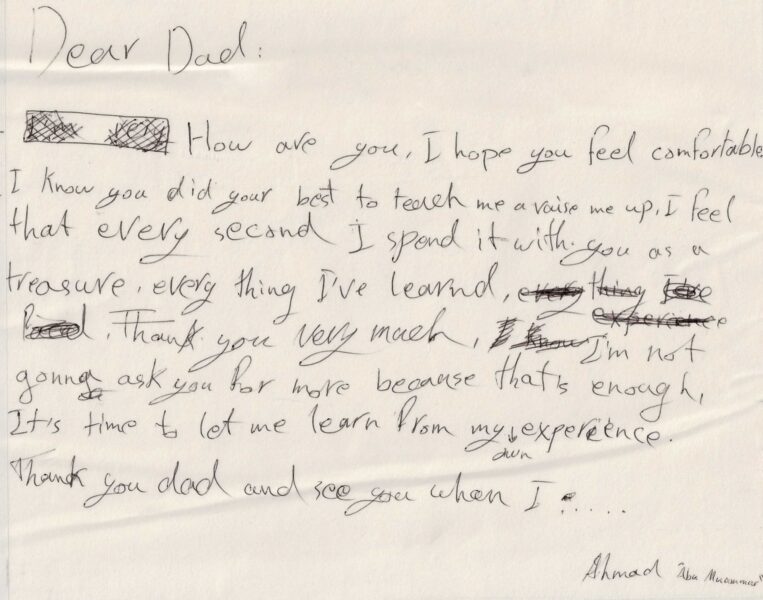 Dear Dad:
How are you, I hope you feel comfortable
I know you did your best to teach me a raise me up, I feel
that every second I spend it with you as a
treasure, every thing I've learnd, every thing I've
experience
, Thank you very much, I know I'm not
gonna ask you for more because that's enough,
It's time to let me learn from my experience.
own
Thank you dad and see you when I .....
Ahmad "Abu Muammar"